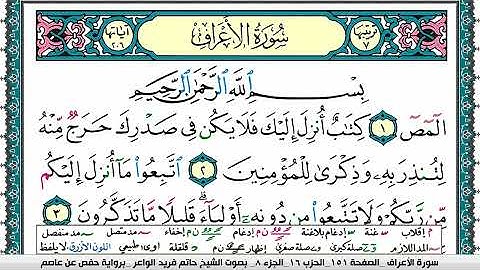 ترتيبها ٧
سُورَةُ الأَعْرَافِ
آياتها ٢٠٦
بِسْمِ اللَّهِ الرَّحْمَٰنِ الرَّحِيمِ
الٓمٓصٓ ١ كِتَٰبٌ أُنزِلَ إِلَيْكَ فَلَا يَكُن فِى صَدْرِكَ حَرَجٌ مِّنْهُ
لِتُنذِرَ بِهِۦ وَذِكْرَىٰ لِلْمُؤْمِنِينَ ٢ ٱتَّبِعُوا۟ مَآ أُنزِلَ إِلَيْكُم
مِّن رَّبِّكُمْ وَلَا تَتَّبِعُوا۟ مِن دُونِهِۦٓ أَوْلِيَآءَ ۗ قَلِيلًا مَّا تَذَكَّرُونَ ٣
م إقلاب غنة إدغام بلاغنة ن م إخفاء مد متصل مد منفصل
المد اللازم صلة كبرى وصلة صغرى إظهار ن م قلقلة لا يلفظ
سورة الأعراف _ الصفحة ١٥١ _ الحزب ١٦ _ الجزء ٨ _ بصوت الشيخ حاتم فريد الواعر _ برواية حفص عن عاصم